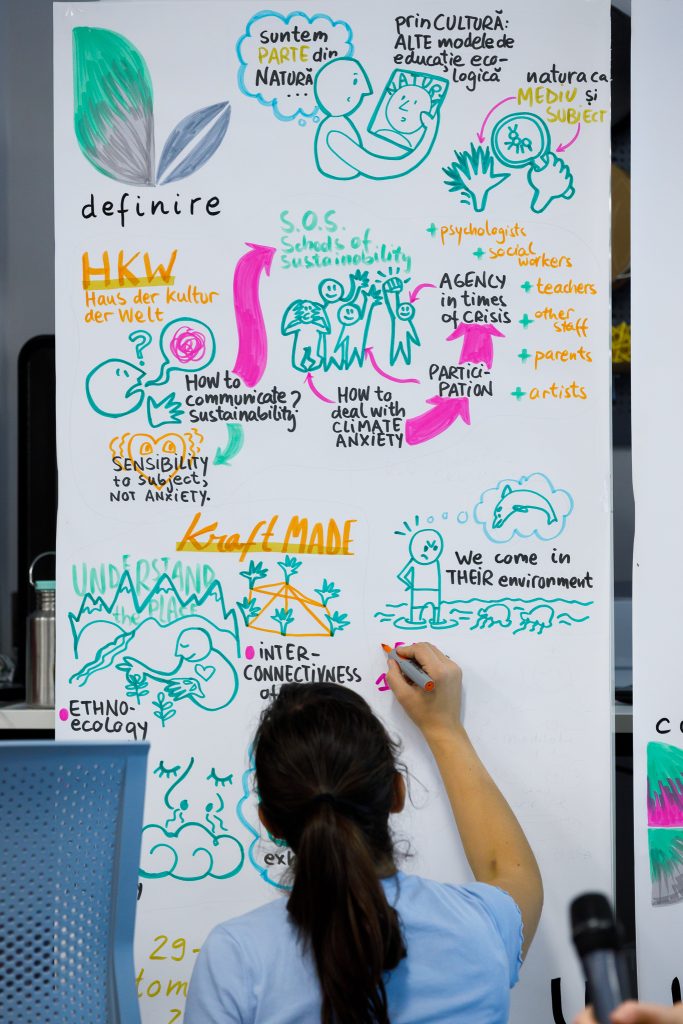 suntem
PARTE din
NATURĂ
...
prin CULTURĂ:
ALTE modele de
educație eco-
logică
NATURA
natura ca
MEDIU și
SUBIECT
definire
S.O.S.
Schools of
sustainability
HKW
Haus der Kultur
der Welt
?
HOW to
communicate?
sustainability
SENSIBILITY
to subject,
NOT ANXIETY.
HOW to
deal with
CLIMATE
ANXIETY
PARTICI-
PATION
AGENCY
in times
of CRISIS
+ psychologists
+ social
workers
+ teachers
+ other
staff
+ parents
+ artists
Kraft MADE
UNDERSTAND
the PLACE
ETHNO-
ecology
INTER-
CONNECTIVNESS
of
We come in
THEIR environment
29-